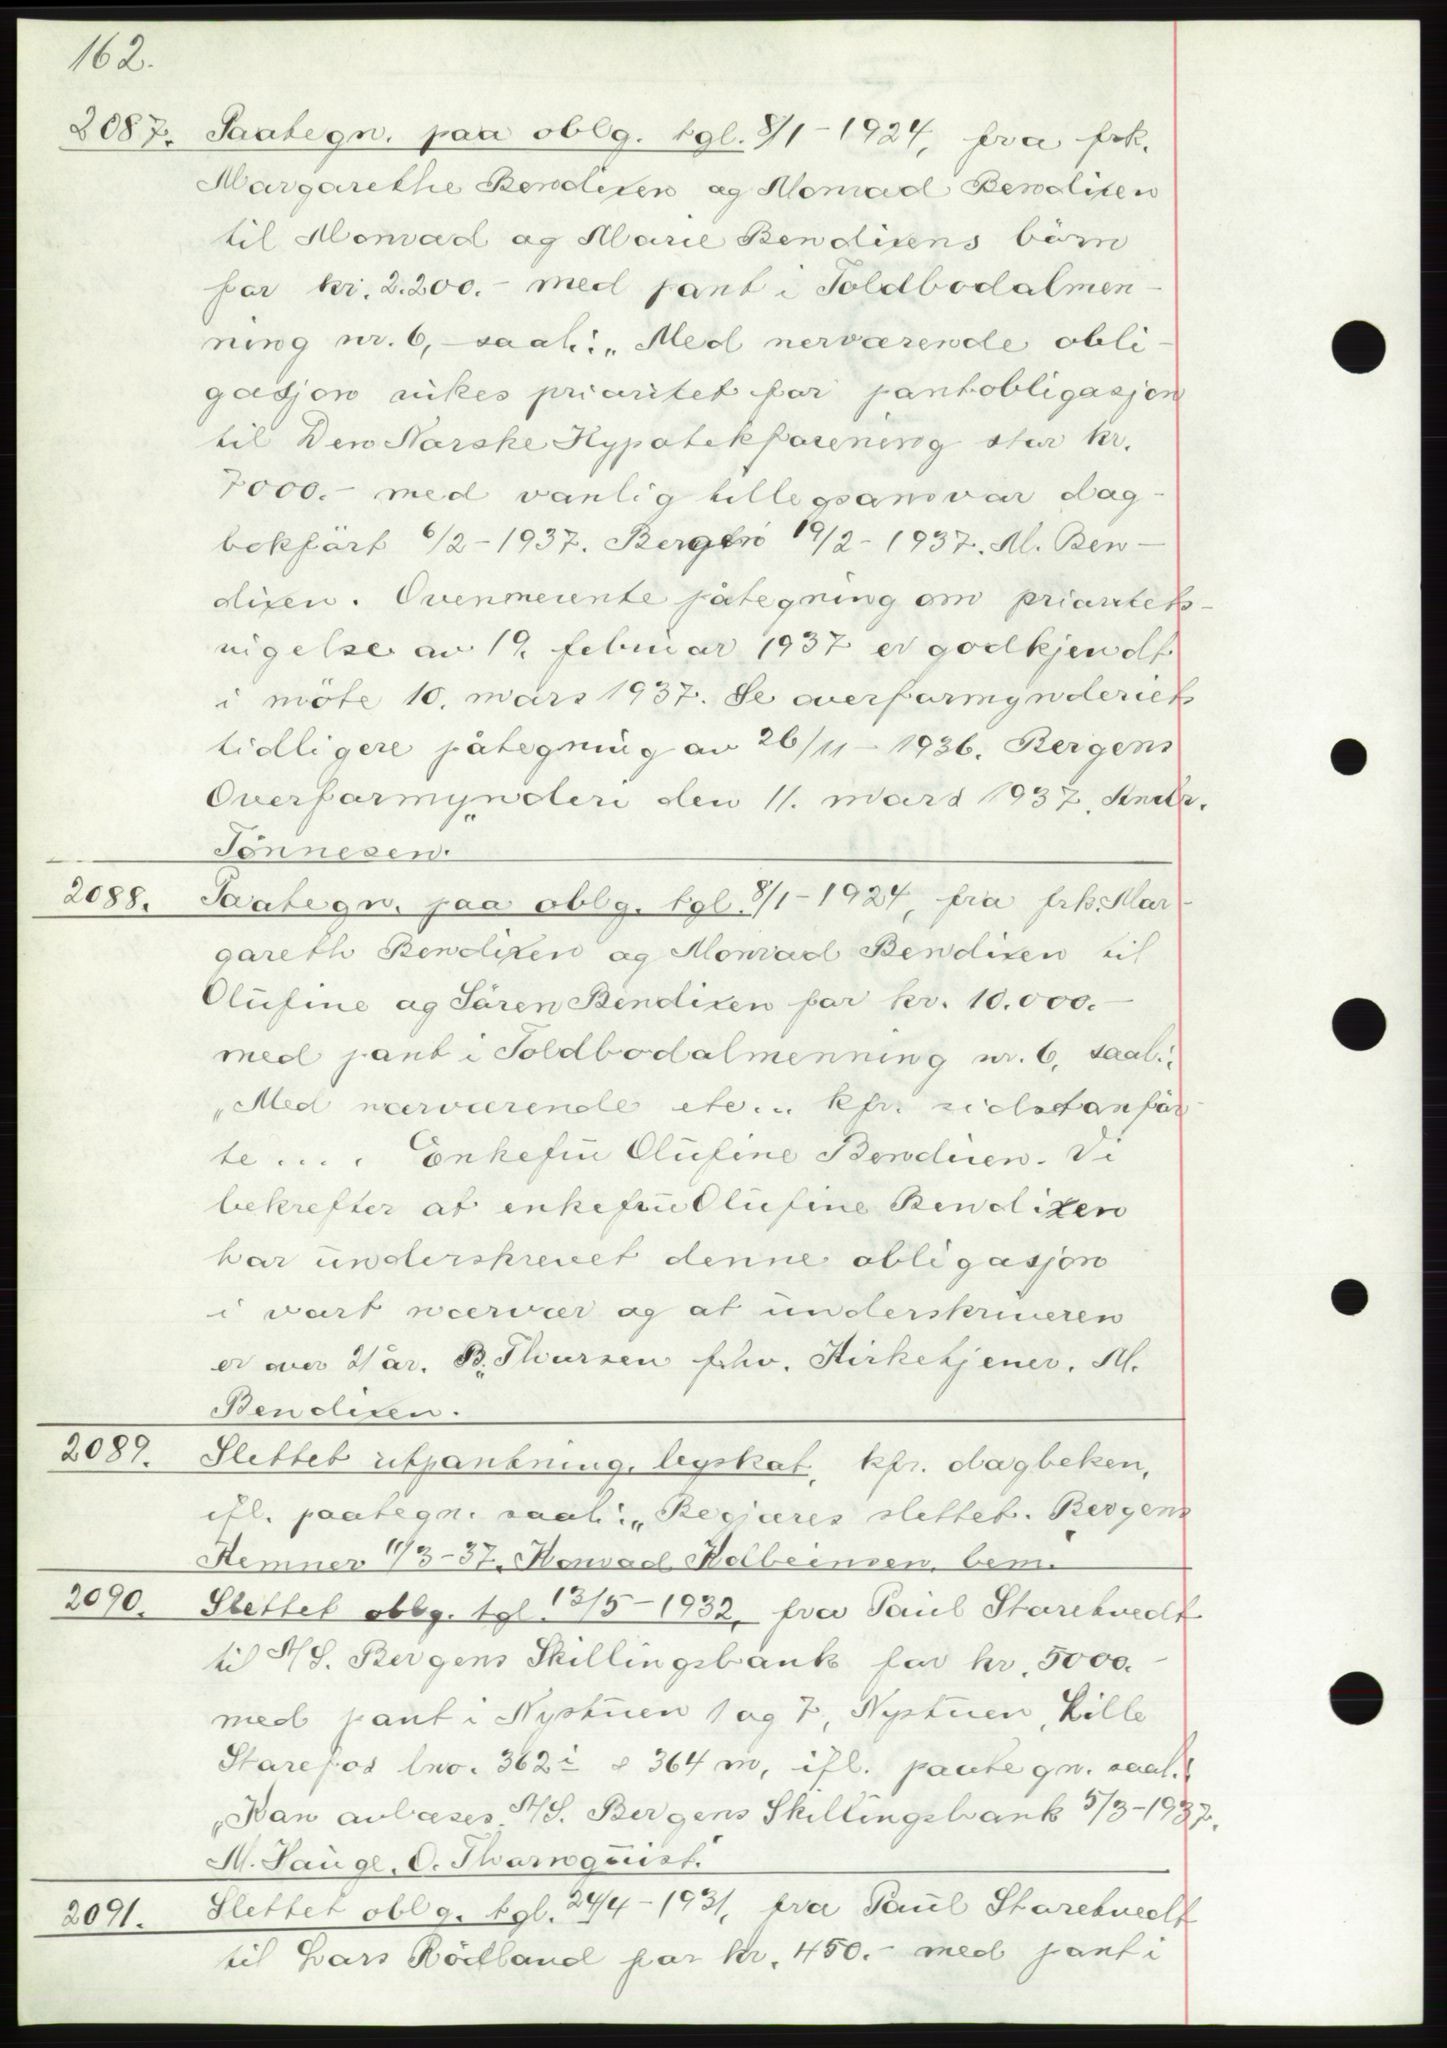 162.
2087. Paategn. paa oblg. tgl. 8/1-1924, fra frk.
Margarethe Bendixen og Monrad Bendixen
til Monrad og Marie Bendixens börn
for kr. 2.200.- med pant i Toldbodalmen-
ning nr. 6, saal: „Med nerværende obli-
gasjon vikes prioritet for pantobligasjon
til Den Norske Hypotekforening stor kr.
7000.- med vanlig tilleggsansvar dag-
bokfört 6/2-1937. Bergen 19/2-1937. M. Ben-
dixen. Ovenmevnte påtegning om prioritets-
vigelse av 19. februar 1937 er godkjendt
i möte 10. mars 1937. Se overformynderiets
tidligere påtegning av 26/11-1936. Bergens
Overformynderi den 11. mars 1937. Andr.
Tönnesen."
2088. Paategn. paa oblg. tgl. 8/1-1924, fra frk. Mar-
gareth Bendixen og Monrad Bendixen til
Olufine og Sören Bendixen for kr. 10.000.-
med pant i Toldbodalmenning nr. 6, saal:
„Med nærværende etc... kfr. sidstanför-
te .... Enkefru Olufine Bendixen. Vi
bekrefter at enkefru Olufine Bendixen
har underskrevet denne obligasjon
i vårt nærvær og at underskriveren
er over 21 år. B. Thursen fhv. Kirketjener. M.
Bendixen."
2089. Slettet utpantning, byskat, kfr. dagboken,
ifl. paategn. saal: „Begjæres slettet. Bergens
Kemner 11/3-37. Konrad Kolbeinsen. bem."
2090. Slettet oblg. tgl. 13/5-1932, fra Paul Staretvedt
til A/S. Bergens Skillingsbank for kr. 5000.-
med pant i Nystuen 1 og 7, Nystuen, Lille
Starefos lno. 362 i & 364 m, ifl. paategn. saal:
„Kan avlæses. A/S. Bergens Skillingsbank 5/3-1937.
M. Hauge. O. Thornquist."
2091. Slettet oblg. tgl. 24/4-1931, fra Paul Staretvedt
til Lars Rödland for kr. 450.- med pant i